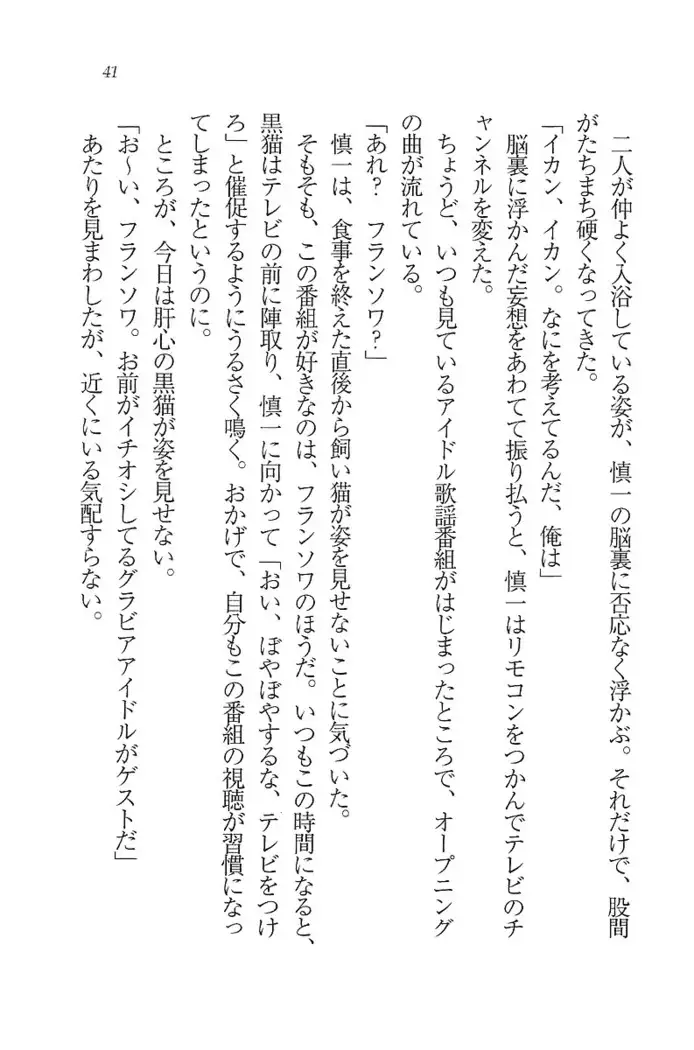 41
二人が仲よく入浴している姿が、慎一の脳裏に否応なく浮かぶ。それだけで、股間
がたちまち硬くなってきた。
「イカン、イカン。なにを考えてるんだ、俺は」
脳裏に浮かんだ妄想をあわてて振り払うと、慎一はリモコンをつかんでテレビのチ
ャンネルを変えた。
ちょうど、いつも見ているアイドル歌謡番組がはじまったところで、オープニング
の曲が流れている。
「あれ？　フランソワ？」
慎一は、食事を終えた直後から飼い猫が姿を見せないことに気づいた。
そもそも、この番組が好きなのは、フランソワのほうだ。いつもこの時間になると、
黒猫はテレビの前に陣取り、慎一に向かって「おい、ぼやぼやするな、テレビをつけ
ろ」と催促するようにうるさく鳴く。おかげで、自分もこの番組の視聴が習慣になっ
てしまったというのに。
ところが、今日は肝心の黒猫が姿を見せない。
「お〜い、フランソワ。お前がイチオシしてるグラビアアイドルがゲストだ」
あたりを見まわしたが、近くにいる気配すらない。